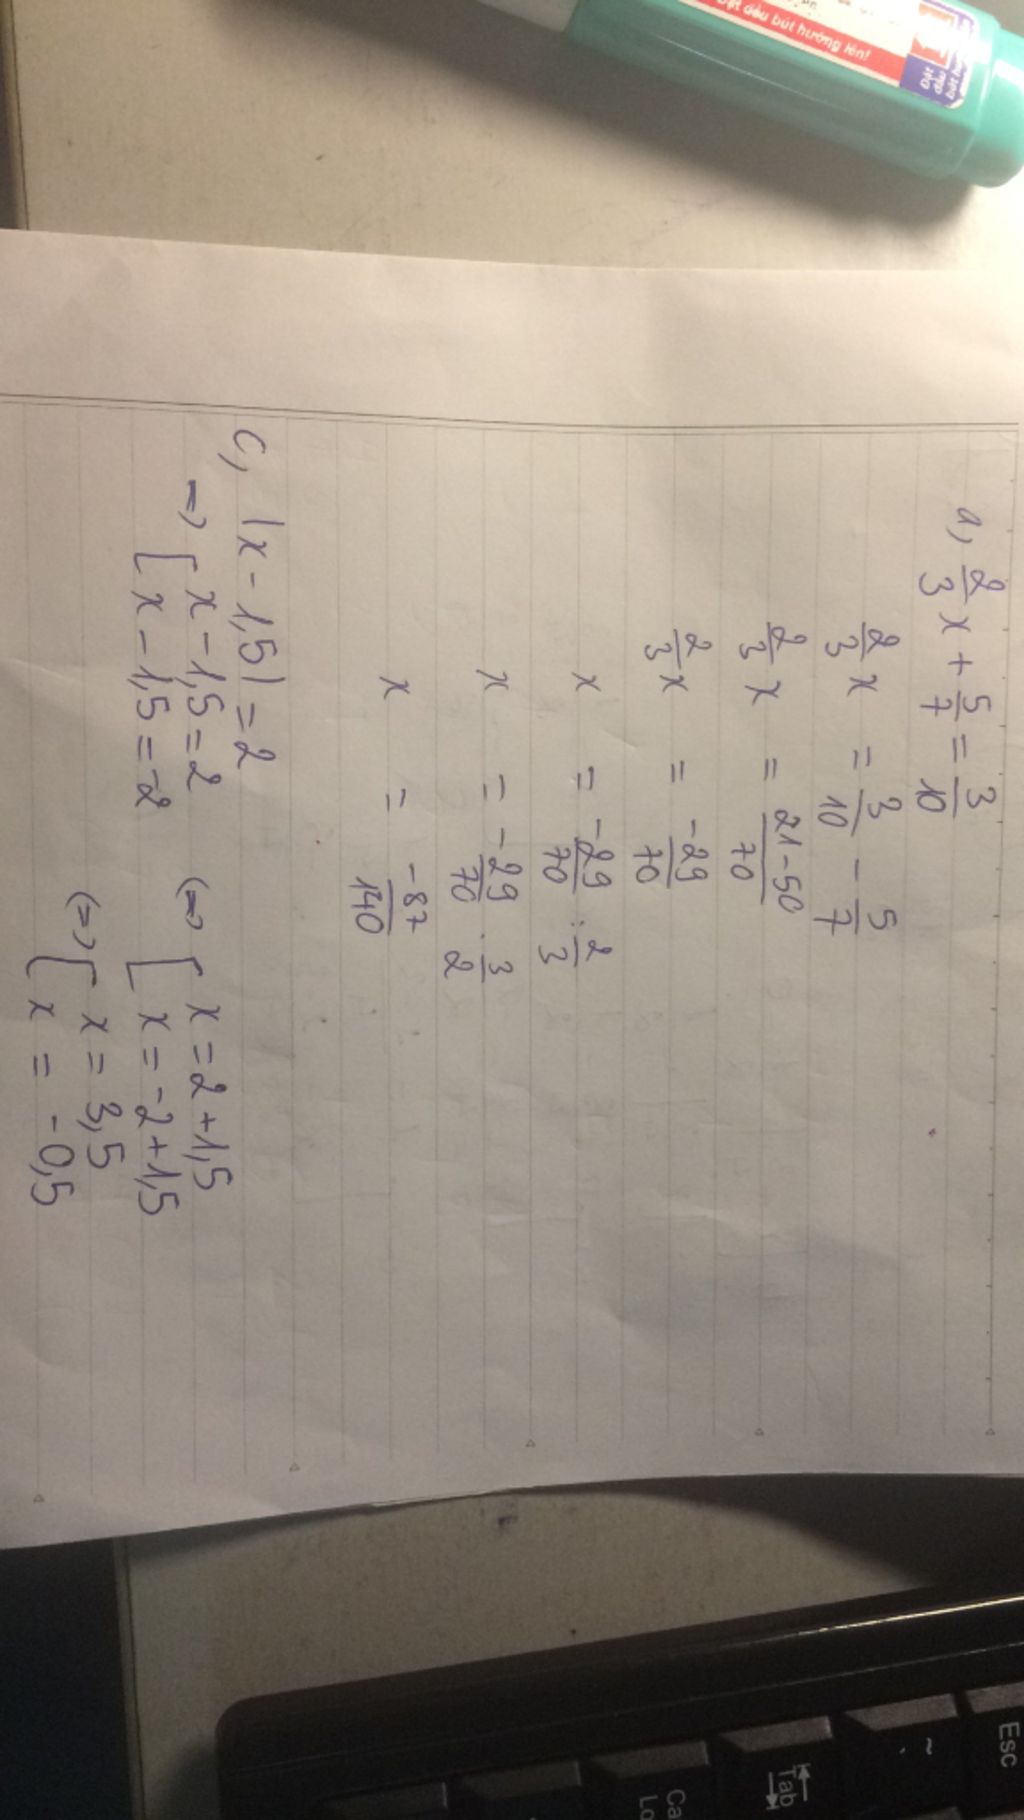 Đặt đầu bút hướng lên!
Đặt
đầu
a, 2/3 x + 5/7 = 3/10
2/3 x = 3/10 - 5/7
2/3 x = 21-50/70
2/3 x = -29/70
x = -29/70 : 2/3
x = -29/70 . 3/2
x = -87/140
c, |x - 1,5| = 2
=> [ x - 1,5 = 2 <=> [ x = 2 + 1,5
[ x - 1,5 = -2 [ x = -2 + 1,5
<=> [ x = 3,5
[ x = -0,5
Esc
~
Tab
Ca
Lo